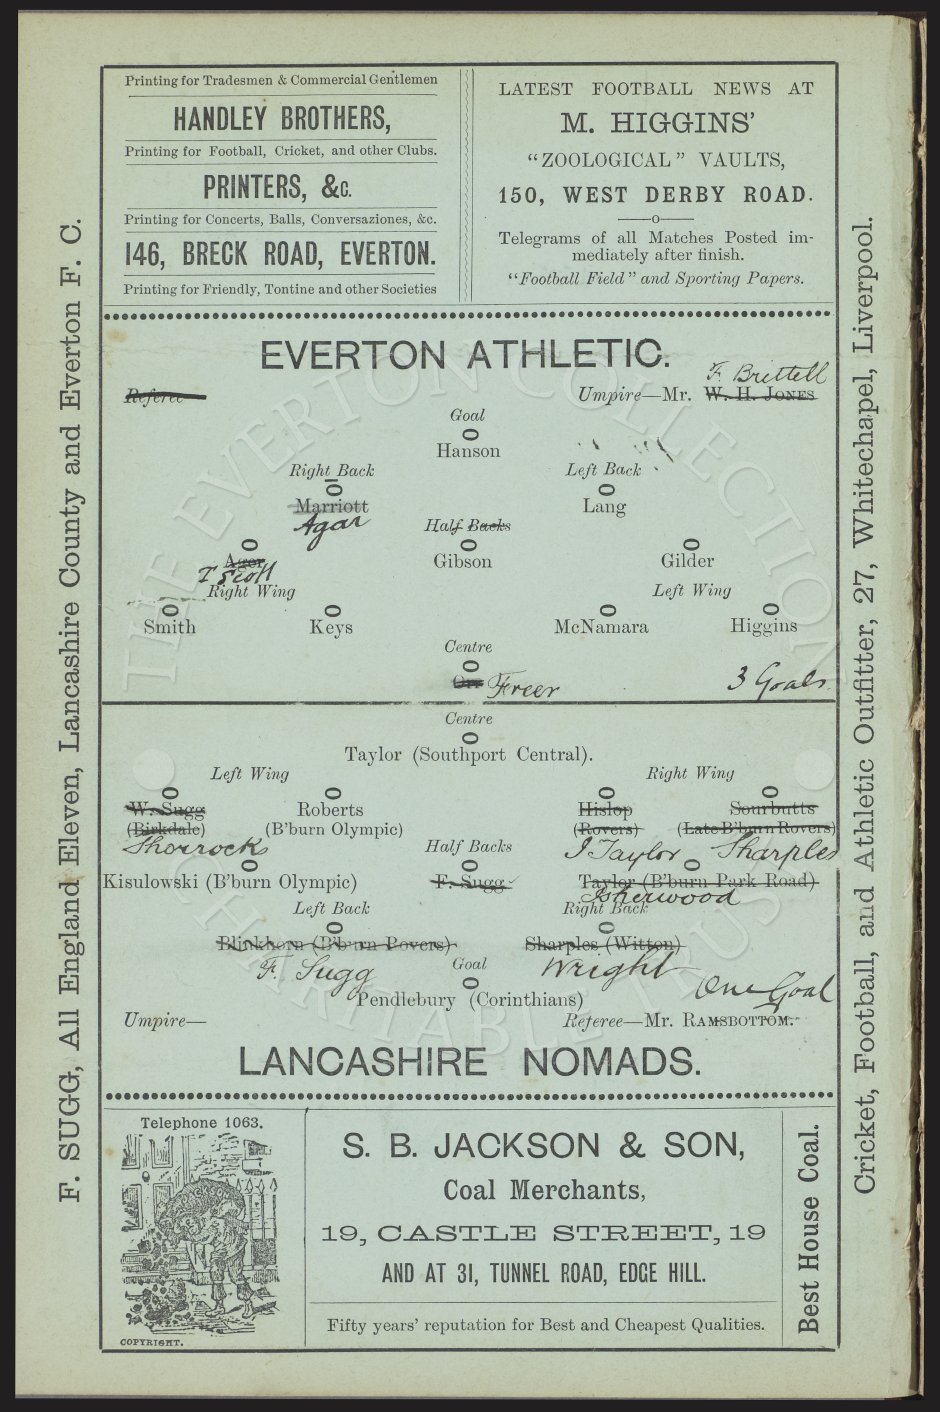 Printing for Tradesmen & Commercial Gentlemen
HANDLEY BROTHERS,
Printing for Football, Cricket, and other Clubs.
PRINTERS, &c.
Printing for Concerts, Balls, Conversaziones, &c.
146, BRECK ROAD, EVERTON.
Printing for Friendly, Tontine and other Societies
LATEST FOOTBALL NEWS AT
M. HIGGINS'
"ZOOLOGICAL" VAULTS,
150, WEST DERBY ROAD.
Telegrams of all Matches Posted im-
mediately after finish.
"Football Field" and Sporting Papers.
F. SUGG, All England Eleven, Lancashire County and Everton F. C.
EVERTON ATHLETIC.
F. Brettell
Referee
Umpire—Mr. W. H. JONES
Goal
O
Hanson
Right Back
Left Back
O
O
Marriott
Lang
Agar
Half Backs
O
O
O
Ager
Gibson
Gilder
T Scott
Right Wing
Left Wing
O
O
O
O
Smith
Keys
McNamara
Higgins
Centre
O
Orr Freer
3 Goals
Centre
O
Taylor (Southport Central).
Left Wing
Right Wing
O
O
O
O
W. Sugg
Roberts
Hislop
Sourbutts
(Birkdale)
(B'burn Olympic)
(Rovers)
(Late B'burn Rovers)
Shorrocks
Half Backs
J Taylor
Sharples
O
O
O
Kisulowski (B'burn Olympic)
F. Sugg
Taylor (B'burn Park Road)
Isherwood
Left Back
Right Back
O
O
Blinkhorn (B'burn Rovers)
Sharples (Witton)
F. Sugg
Goal
Wright
O
Pendlebury (Corinthians)
One Goal
Umpire—
Referee—Mr. RAMSBOTTOM.
LANCASHIRE NOMADS.
Cricket, Football, and Athletic Outfitter, 27, Whitechapel, Liverpool.
Telephone 1063.
JACKSON
COPYRIGHT.
S. B. JACKSON & SON,
Coal Merchants,
19, CASTLE STREET, 19
AND AT 31, TUNNEL ROAD, EDGE HILL.
Fifty years' reputation for Best and Cheapest Qualities.
Best House Coal.
THE EVERTON COLLECTION
CHARITABLE TRUST